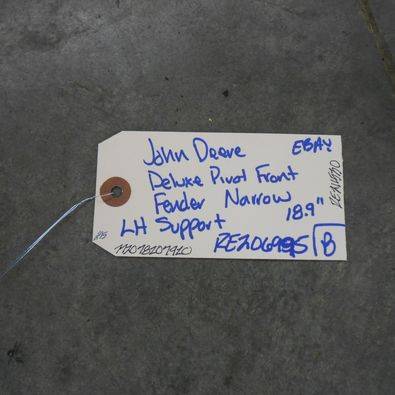 John Deere EBAY
Deluxe Pivot Front
Fender Narrow 18.9"
LH Support
RE206995 B